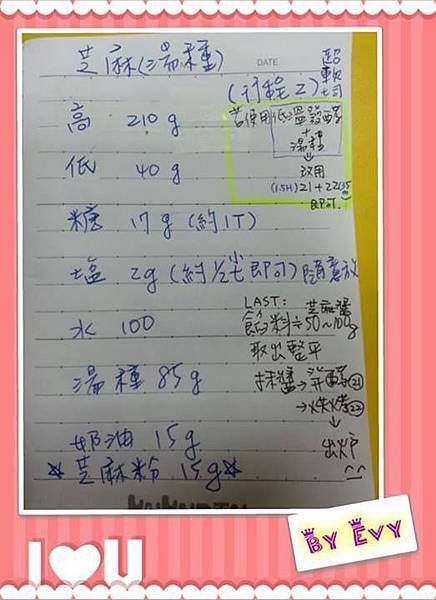 芝麻(湯種)
DATE
超軟
(行程2)
高 210g
低 40g
糖 17g (約1T)
塩 2g (約½t即可) 隨意放
水 100
湯種 85g
奶油 15g
☆芝麻粉 15g☆
若使用低溫發酵
+
湯種
↓
改用
(1.5H) 21+22(35)
即可.
LAST: 芝麻醬
餡料≑50~100g
取出整平
抹醬→發酵(21)
→烘烤(22)
↓
出炉
^^
I♥U
BY EVY